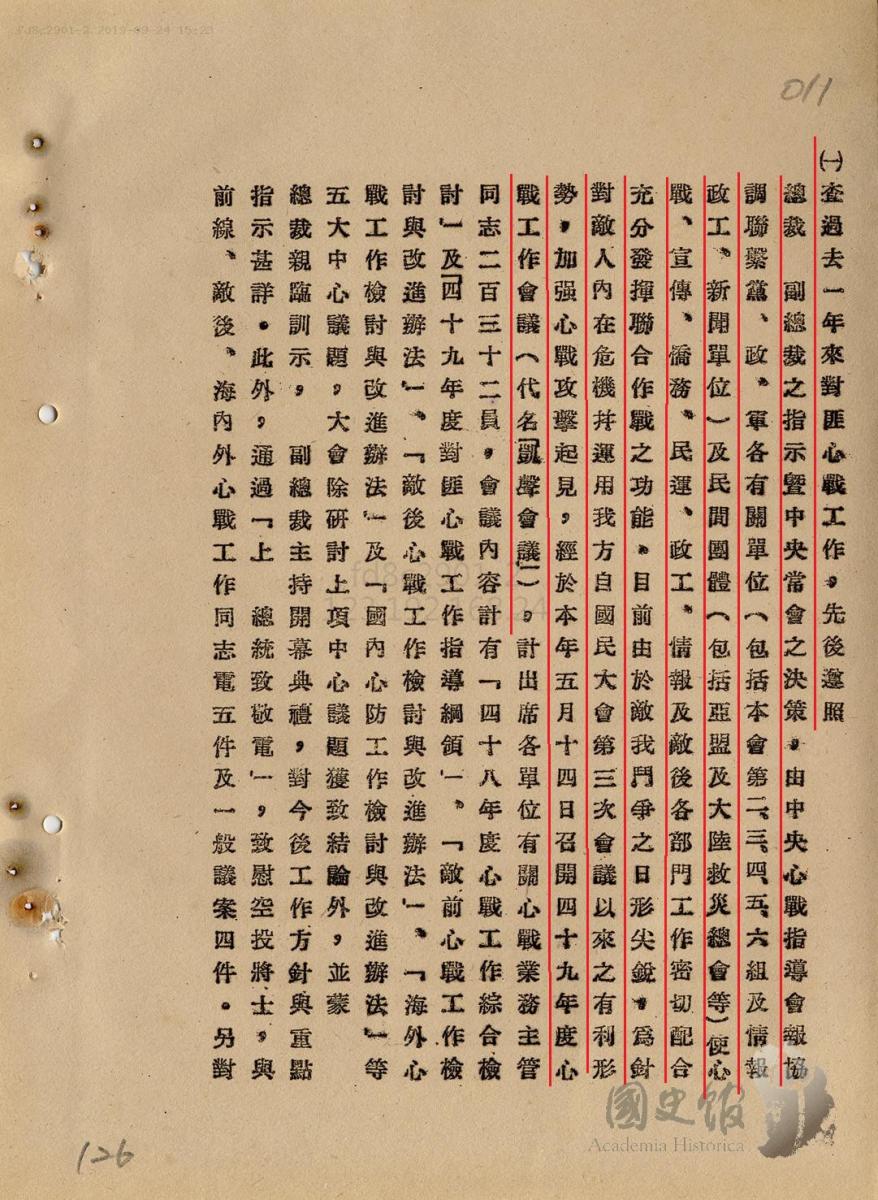 011
㈠查過去一年來對匪心戰工作,先後遵照
總裁 副總裁之指示暨中央常會之決策,由中央心戰指導會報協
調聯繫黨、政、軍各有關單位(包括本會第二、三、四、五、六組及情報
政工、新聞單位)及民間團體(包括亞盟及大陸救災總會等)使心
戰、宣傳、僑務、民運、政工、情報及敵後各部門工作密切配合
充分發揮聯合作戰之功能。目前由於敵我鬥爭之日形尖銳,為針
對敵人內在危機并運用我方自國民大會第三次會議以來之有利形
勢,加强心戰攻擊起見,經於本年五月十四日召開四十九年度心
戰工作會議(代名「凱聲會議」)。計出席各單位有關心戰業務主管
同志二百三十二員,會議內容計有「四十八年度心戰工作綜合檢
討」及「四十九年度對匪心戰工作指導綱領」、「敵前心戰工作檢
討與改進辦法」、「敵後心戰工作檢討與改進辦法」、「海外心
戰工作檢討與改進辦法」及「國內心防工作檢討與改進辦法」等
五大中心議題,大會除研討上項中心議題獲致結論外,並蒙
總裁親臨訓示, 副總裁主持開幕典禮,對今後工作方針與重點
指示甚詳。此外,通過「上 總統致敬電」,致慰空投將士,與
前線、敵後、海內外心戰工作同志電五件及一般議案四件。另對
126
國史館
Academia Historica